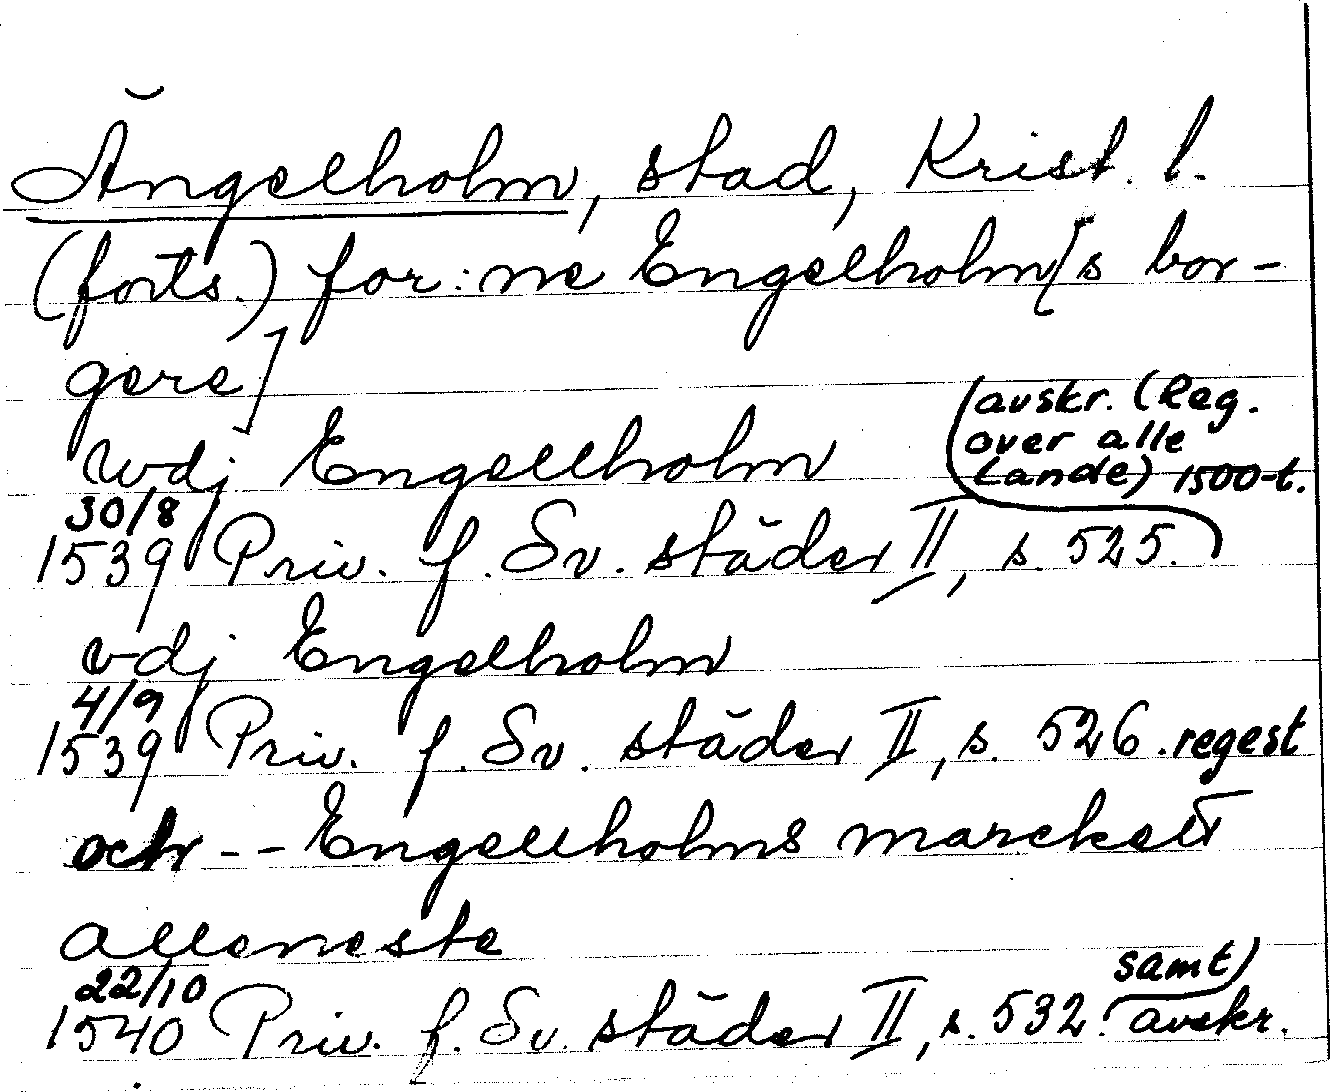 Ängelholm, stad, Krist. l.
(forts.) for:ne Engelholm[s bor-
gere]
wdj Engellholm
avskr. (Reg.
over alle
Lande) 1500-t.
30/8
1539 Priv. f. Sv. städer II, s. 525.
vdj Engelholm
4/9
1539 Priv. f. Sv. städer II, s. 526. regest
och -- Engellholms marckett
alleneste
22/10
1540 Priv. f. Sv. städer II, s. 532. samt)
avskr.